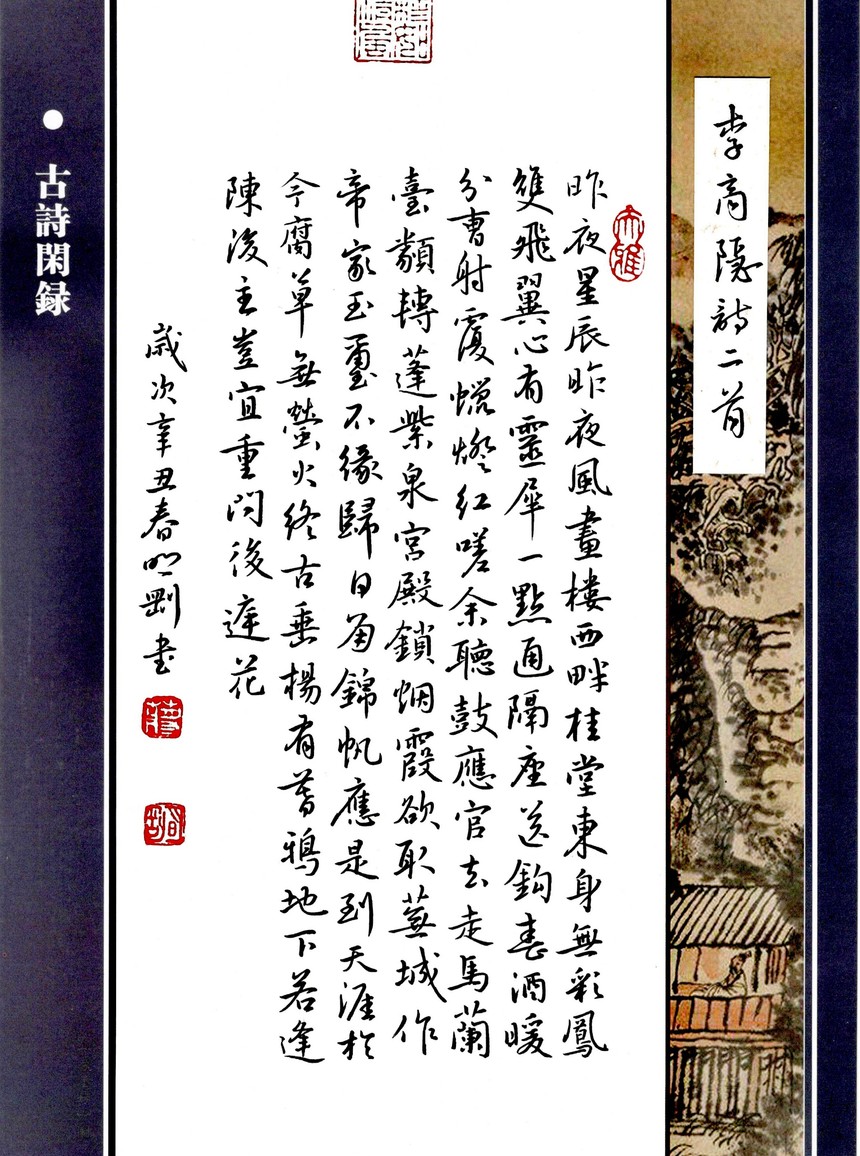 李商隱詩二首
昨夜星辰昨夜風畫樓西畔桂堂東身無彩鳳
雙飛翼心有靈犀一點通隔座送鈎春酒暖
分曹射覆蠟燈紅嗟余聽鼓應官去走馬蘭
臺類轉蓬紫泉宮殿鎖烟霞欲取蕪城作
帝家玉璽不緣歸日角錦帆應是到天涯於
今腐草無螢火終古垂楊有暮鴉地下若逢
陳後主豈宜重問後庭花
歲次辛丑春明剛书
古詩閑録